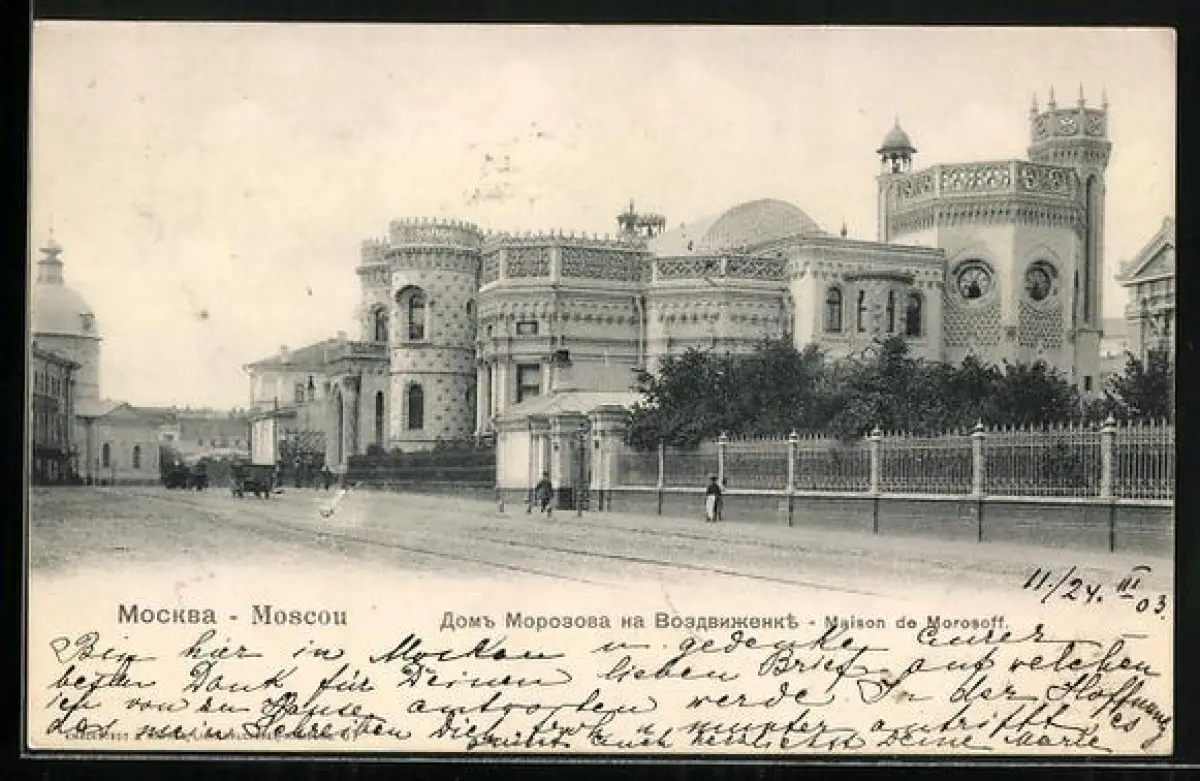 11./24. III 03.
Москва - Moscou
Домъ Морозова на Воздвиженкѣ - Maison de Morosoff.
Bin hier in Moskau u. gedenke Eurer
besten Dank für Deinen lieben Brief, auf welchen
ich von zu Hause antworten werde. In der Hoffnung
das mein Schreiben Dich froh u munter antrifft
es grüsst Euch herzlichst Deine Marie